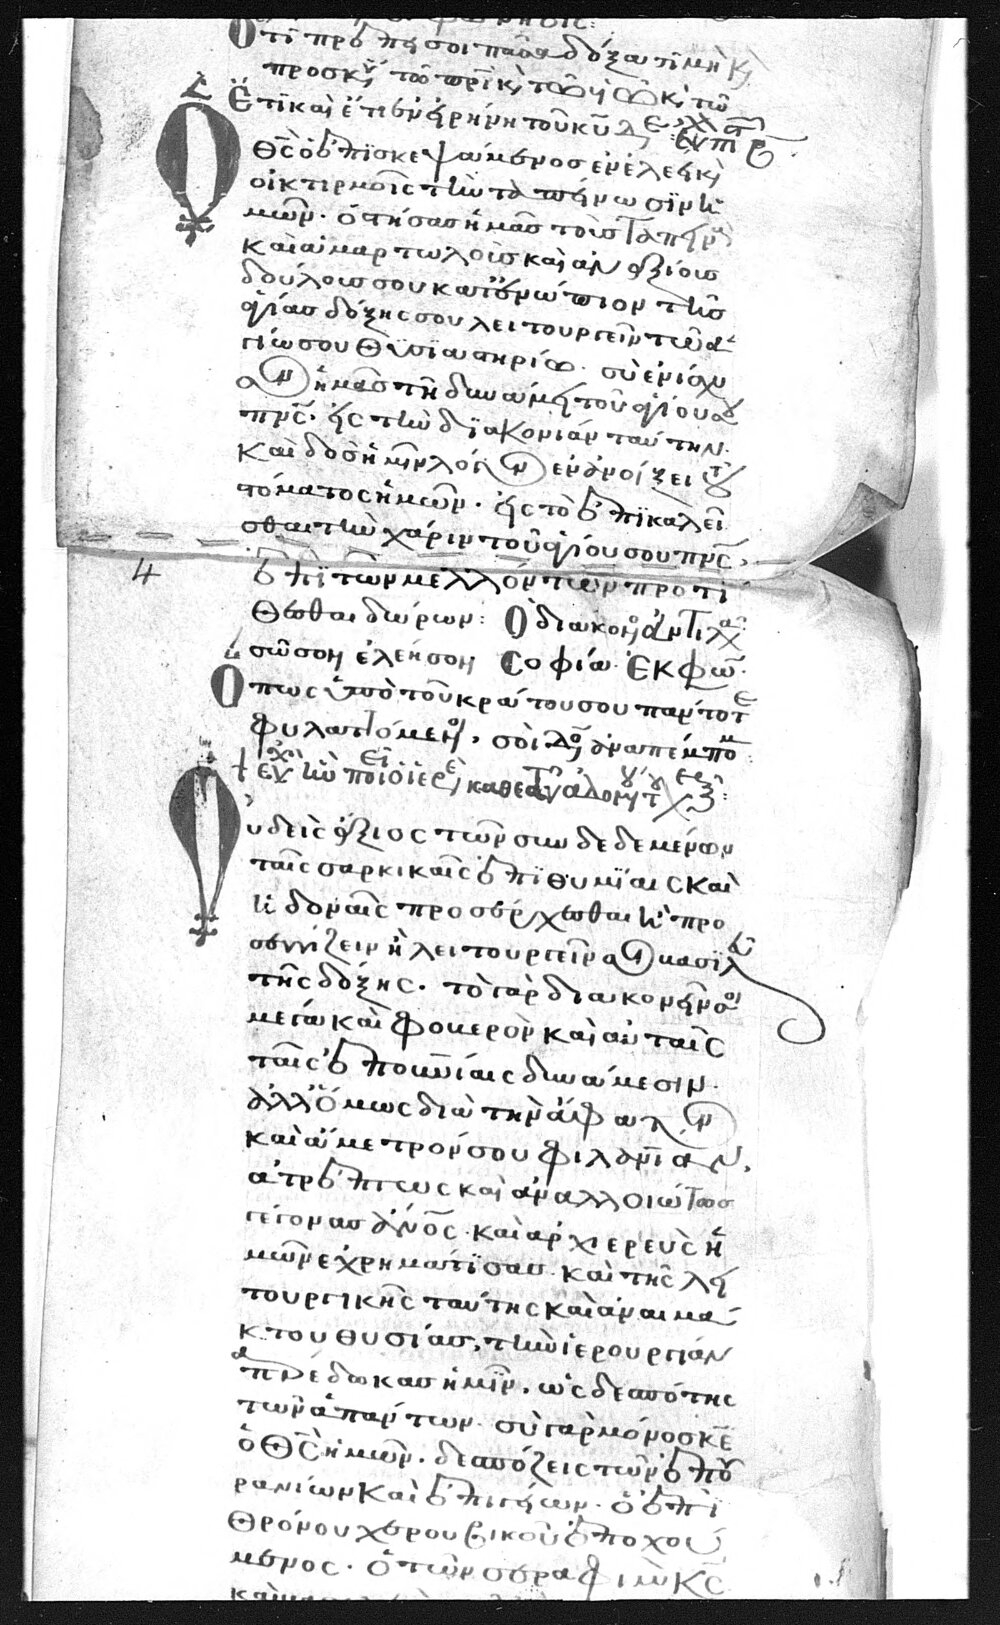 Ὅτι πρέπει σοι πᾶσα δόξα τιμὴ κ(αὶ)
προσκύ τῶ πρὶ κ(αὶ) τῶ υἱῶ κ(αὶ) τῶ
Ἔτι καὶ ἔτι ἐν εἰρήνη τοῦ κυ
Θς ὁ ἐπισκεψάμενος ἐν ἐλέει κ(αὶ)
οἰκτιρμοῖς τὴν ταπείνωσιν ἡ
μῶν. ὁ στήσας ἡμᾶς τοὺς ταπεινοὺς
καὶ ἁμαρτωλοὺς καὶ ἀναξίους
δούλους σου κατενώπιον τῆς
ἁγίας δόξης σου λειτουργεῖν τῶ ἁ
γίω σου θυσιαστηρίω. σὺ ἐνίσχυ
σον ἡμᾶς τῆ δυνάμει τοῦ ἁγίου σου
πνς. εἰς τὴν διακονίαν ταύτην.
Καὶ δὸς ἡμῖν λόγον ἐν ἀνοίξει τοῦ
στόματος ἡμῶν. εἰς τὸ ἐπικαλεῖ
σθαι τὴν χάριν τοῦ ἁγίου σου πνς,
4
ἐπὶ τῶν μελλόντων προτί
θεσθαι δώρων: Ὁ διάκον ἀντιλα
σῶσον ἐλέησον Σοφία. Ἐκφώ.
Ὅπως ὑπὸ τοῦ κράτους σου πάντοτε
φυλαττόμενοι, σοὶ δόξαν ἀναπέμπομ
εὐχὴ ἣν ποιεῖ ὁ ἱερεὺς καθ' ἑαυτὸν ᾀδομένου τοῦ χερ
Οὐδεὶς ἄξιος τῶν συνδεδεμένων
ταῖς σαρκικαῖς ἐπιθυμίαις καὶ
ἡδοναῖς προσέρχεσθαι ἢ προ
σεγγίζειν ἢ λειτουργεῖν σοι βασιλεῦ
τῆς δόξης. τὸ γὰρ διακονεῖν σοι
μέγα καὶ φοβερὸν καὶ αὐταῖς
ταῖς ἐπουνίαις δυνάμεσιν.
ἀλλ' ὅμως διὰ τὴν ἄφατον
καὶ ἄμετρόν σου φιλανίαν,
ἀτρέπτως καὶ ἀναλλοιώτως
γέγονας ἄνος. καὶ ἀρχιερεὺς ἡ
μῶν ἐχρημάτισας. καὶ τῆς λει
τουργικῆς ταύτης καὶ ἀναιμά
κτου θυσίας, τὴν ἱερουργίαν
παρέδωκας ἡμῖν, ὡς δεσπότης
τῶν ἁπάντων. σὺ γὰρ μόνος κε
ὁ Θς ἡμῶν. δεσπόζεις τῶν ἐπου
ρανίων καὶ ἐπιγείων. ὁ ἐπὶ
θρόνου χερουβικοῦ ἐποχού
μενος. ὁ τῶν σεραφὶμ κς